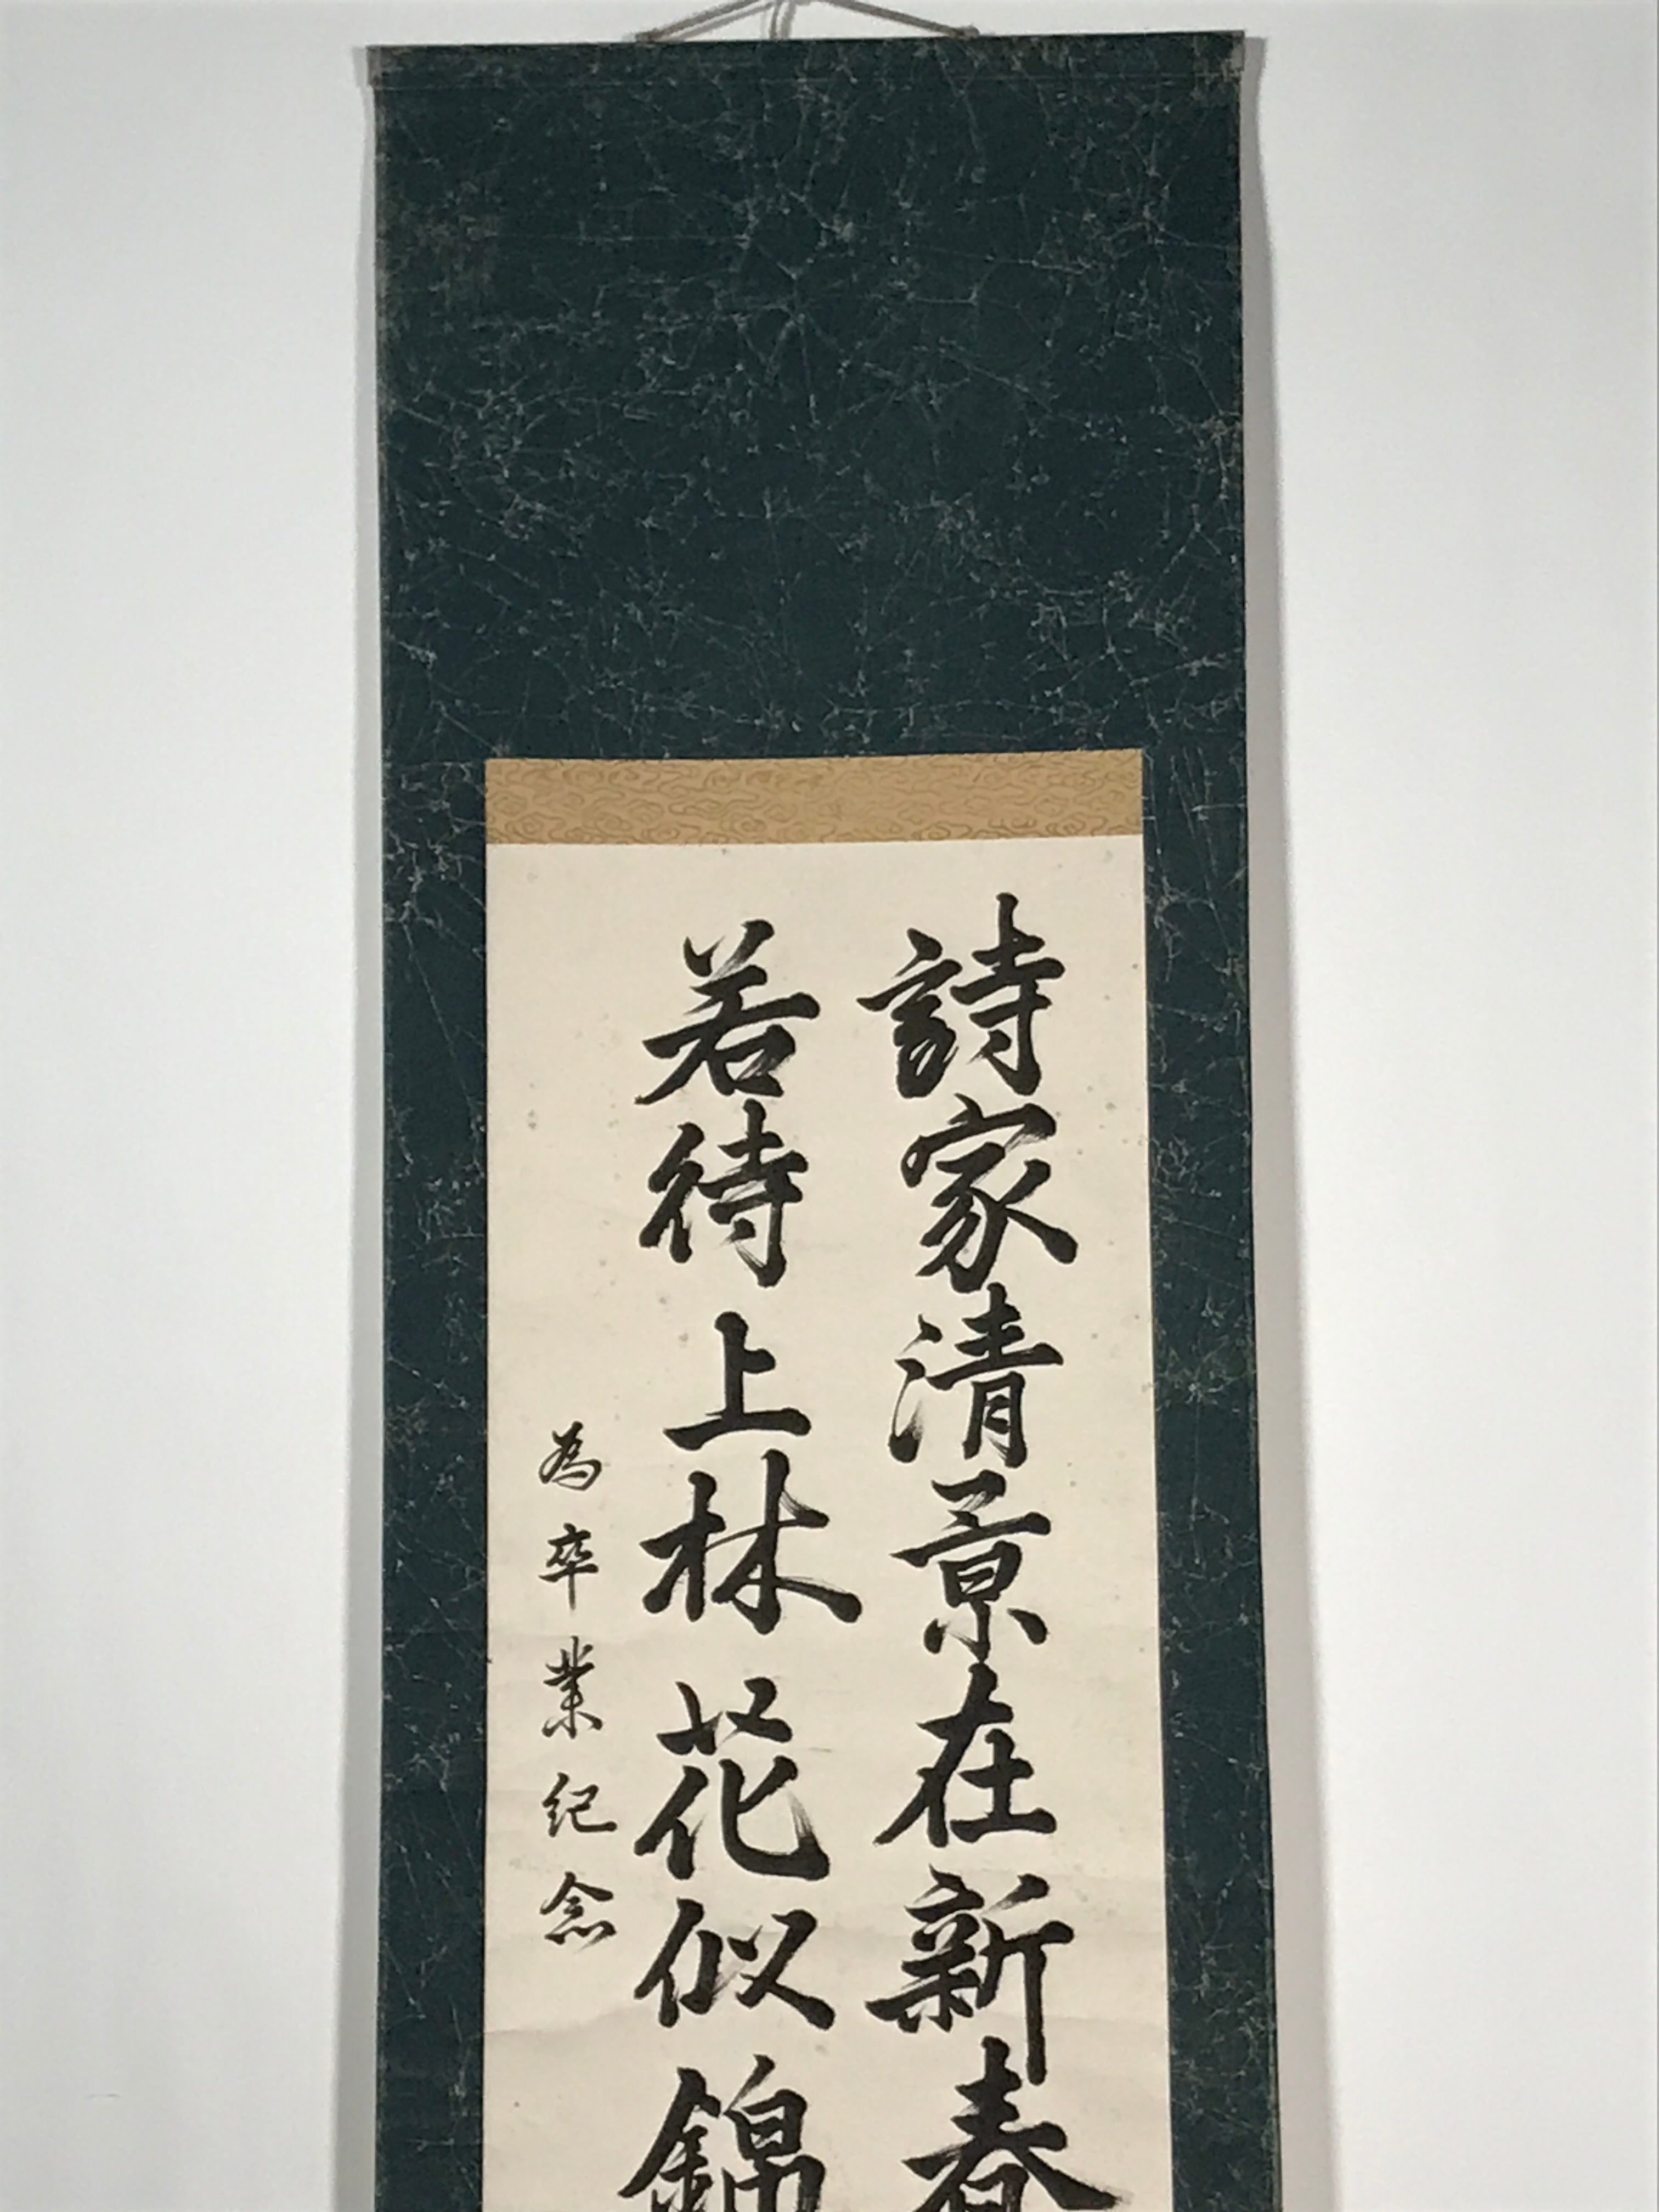 詩家清景在新春
若待上林花似錦
為卒業紀念